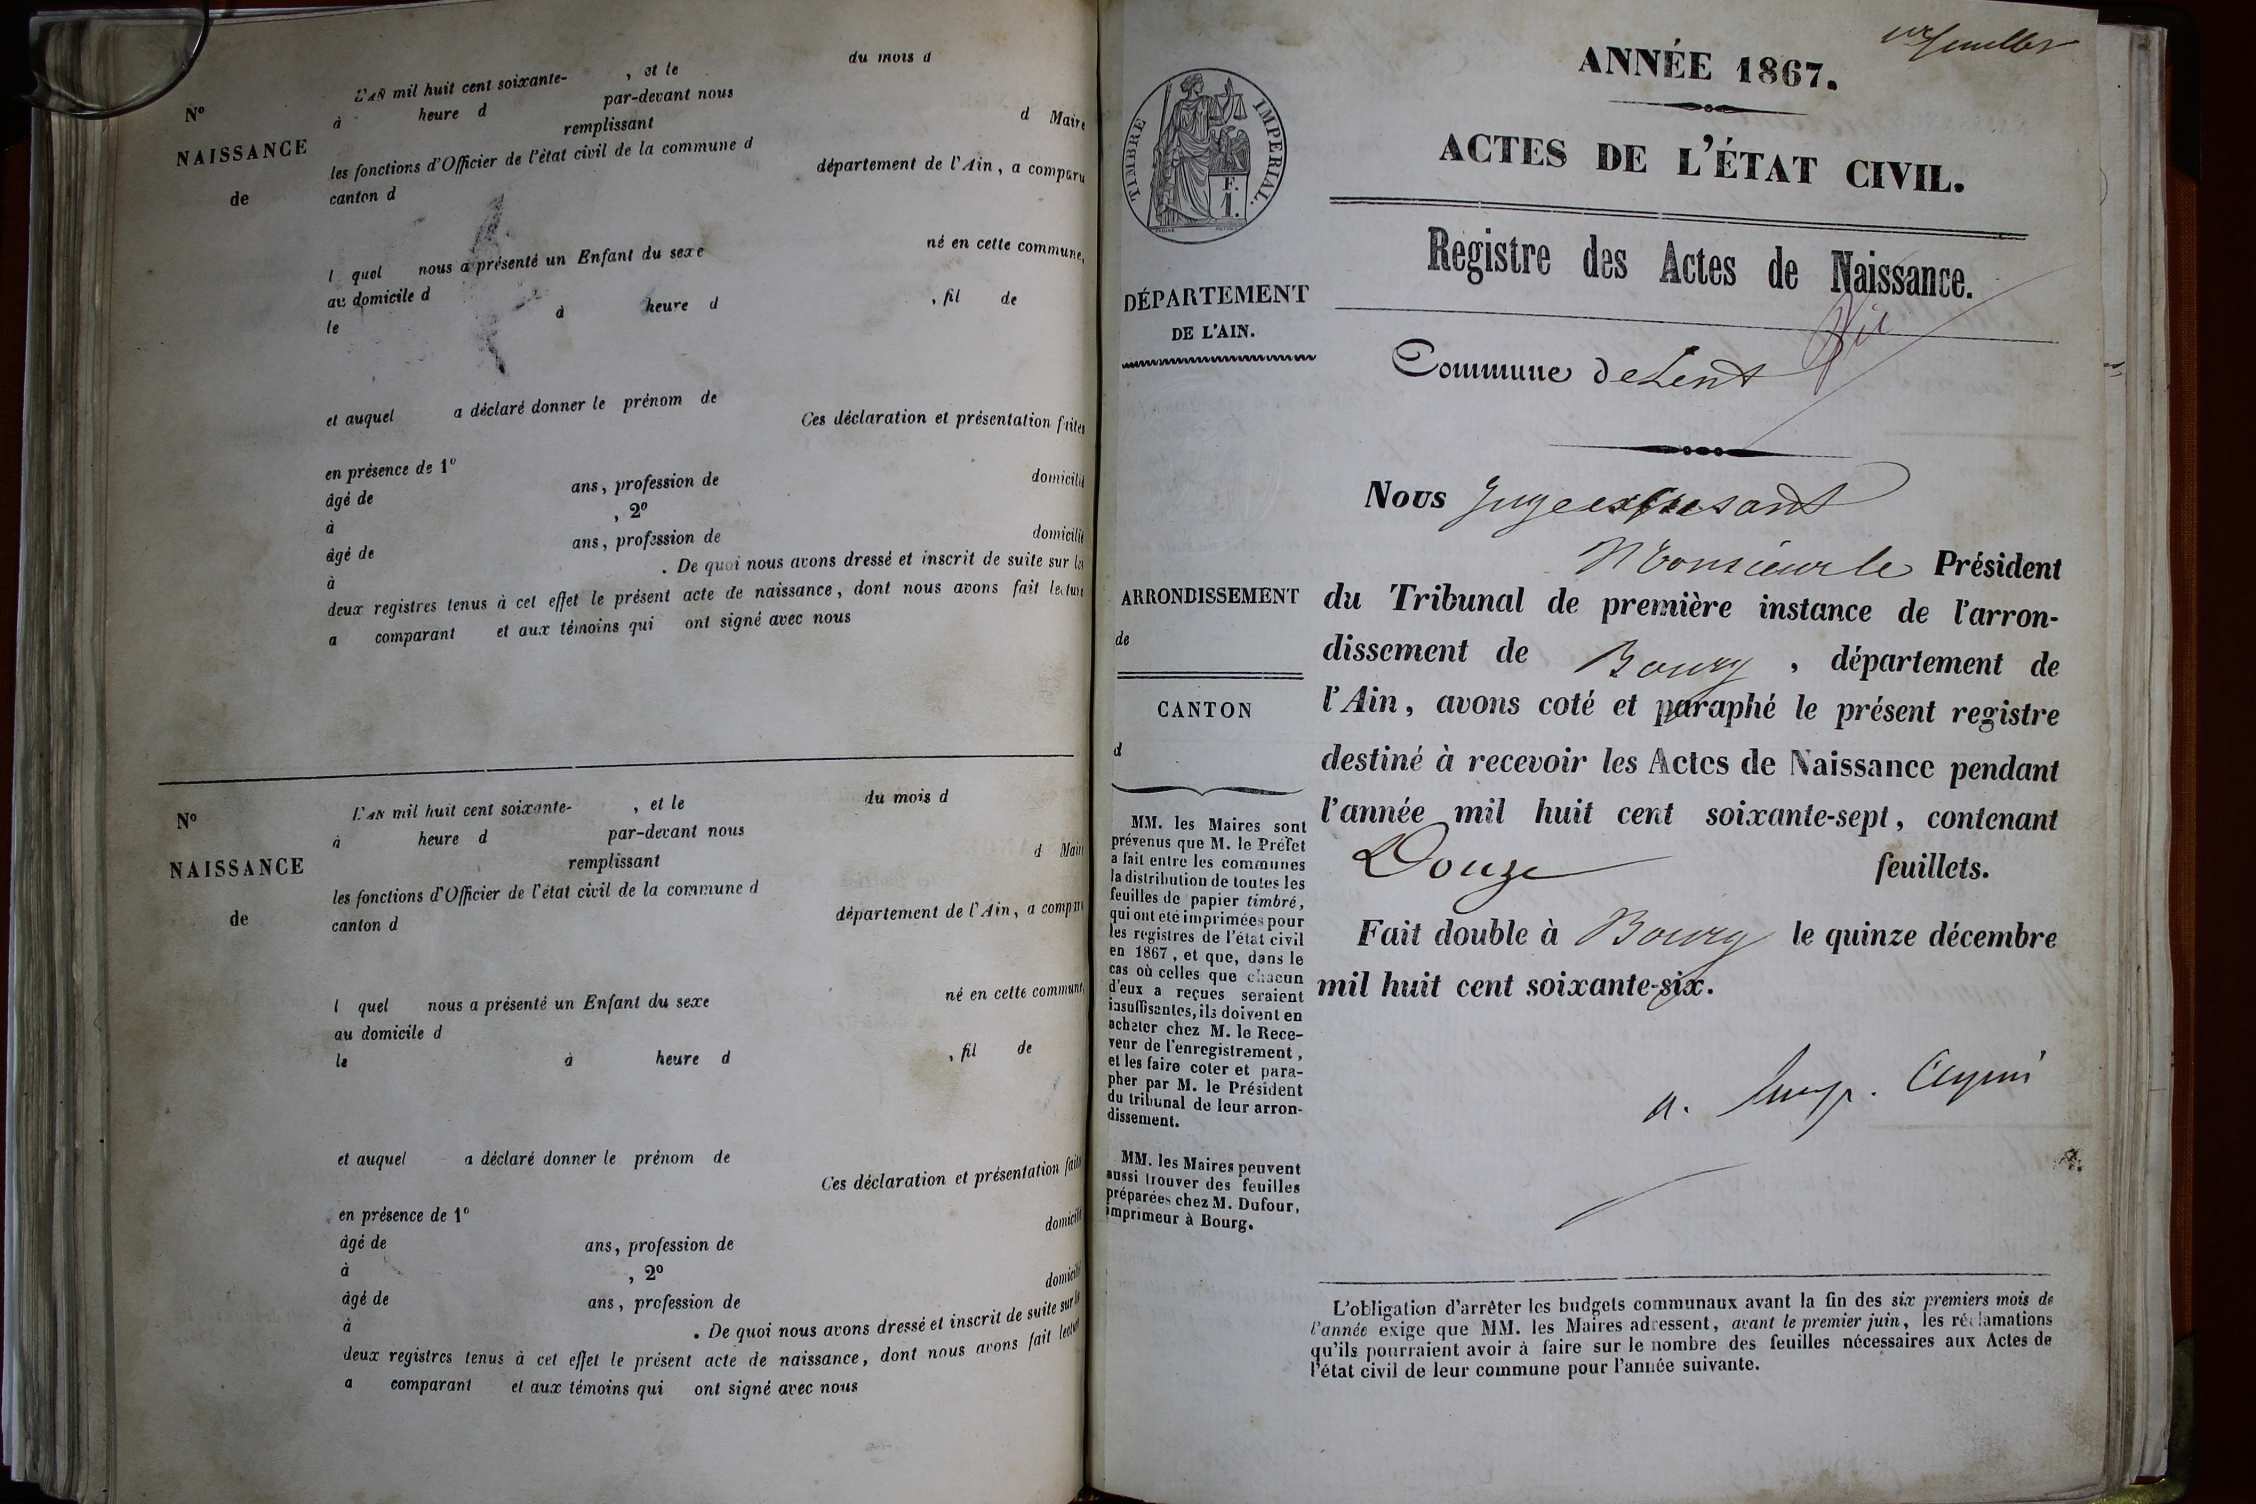 L'AN mil huit cent soixante- , et le du mois d
N° à heure d par-devant nous
remplissant d Maire
NAISSANCE les fonctions d'Officier de l'état civil de la commune d
de canton d département de l'Ain, a comparu
l quel nous a présenté un Enfant du sexe né en cette commune,
au domicile d
le à heure d , fil de
et auquel a déclaré donner le prénom de
Ces déclaration et présentation faites
en présence de 1°
âgé de ans, profession de domicilié
à , 2°
âgé de ans, profession de domicilié
à . De quoi nous avons dressé et inscrit de suite sur les
deux registres tenus à cet effet le présent acte de naissance, dont nous avons fait lecture
a comparant et aux témoins qui ont signé avec nous
N° L'AN mil huit cent soixante- , et le du mois d
à heure d par-devant nous
NAISSANCE remplissant d Maire
les fonctions d'Officier de l'état civil de la commune d
de canton d département de l'Ain, a comparu
l quel nous a présenté un Enfant du sexe né en cette commune,
au domicile d
le à heure d , fil de
et auquel a déclaré donner le prénom de
Ces déclaration et présentation faites
en présence de 1°
âgé de ans, profession de domicilié
à , 2°
âgé de ans, profession de domicilié
à . De quoi nous avons dressé et inscrit de suite sur les
deux registres tenus à cet effet le présent acte de naissance, dont nous avons fait lecture
a comparant et aux témoins qui ont signé avec nous
ANNÉE 1867.
TIMBRE IMPERIAL.
F.
1.
ACTES DE L'ÉTAT CIVIL.
Registre des Actes de Naissance.
DÉPARTEMENT
DE L'AIN.
Commune de Lent
Nous Juge
Monsieur le Président
du Tribunal de première instance de l'arron-
dissement de Bourg, département de
l'Ain, avons coté et paraphé le présent registre
destiné à recevoir les Actes de Naissance pendant
l'année mil huit cent soixante-sept, contenant
Douze feuillets.
Fait double à Bourg le quinze décembre
mil huit cent soixante-six.
ARRONDISSEMENT
de
CANTON
d
MM. les Maires sont
prévenus que M. le Préfet
a fait entre les communes
la distribution de toutes les
feuilles de papier timbré,
qui ont été imprimées pour
les registres de l'état civil
en 1867, et que, dans le
cas où celles que chacun
d'eux a reçues seraient
insuffisantes, ils doivent en
acheter chez M. le Rece-
veur de l'enregistrement,
et les faire coter et para-
pher par M. le Président
du tribunal de leur arron-
dissement.
MM. les Maires peuvent
aussi trouver des feuilles
préparées chez M. Dufour,
imprimeur à Bourg.
L'obligation d'arrêter les budgets communaux avant la fin des six premiers mois de
l'année exige que MM. les Maires adressent, avant le premier juin, les réclamations
qu'ils pourraient avoir à faire sur le nombre des feuilles nécessaires aux Actes de
l'état civil de leur commune pour l'année suivante.